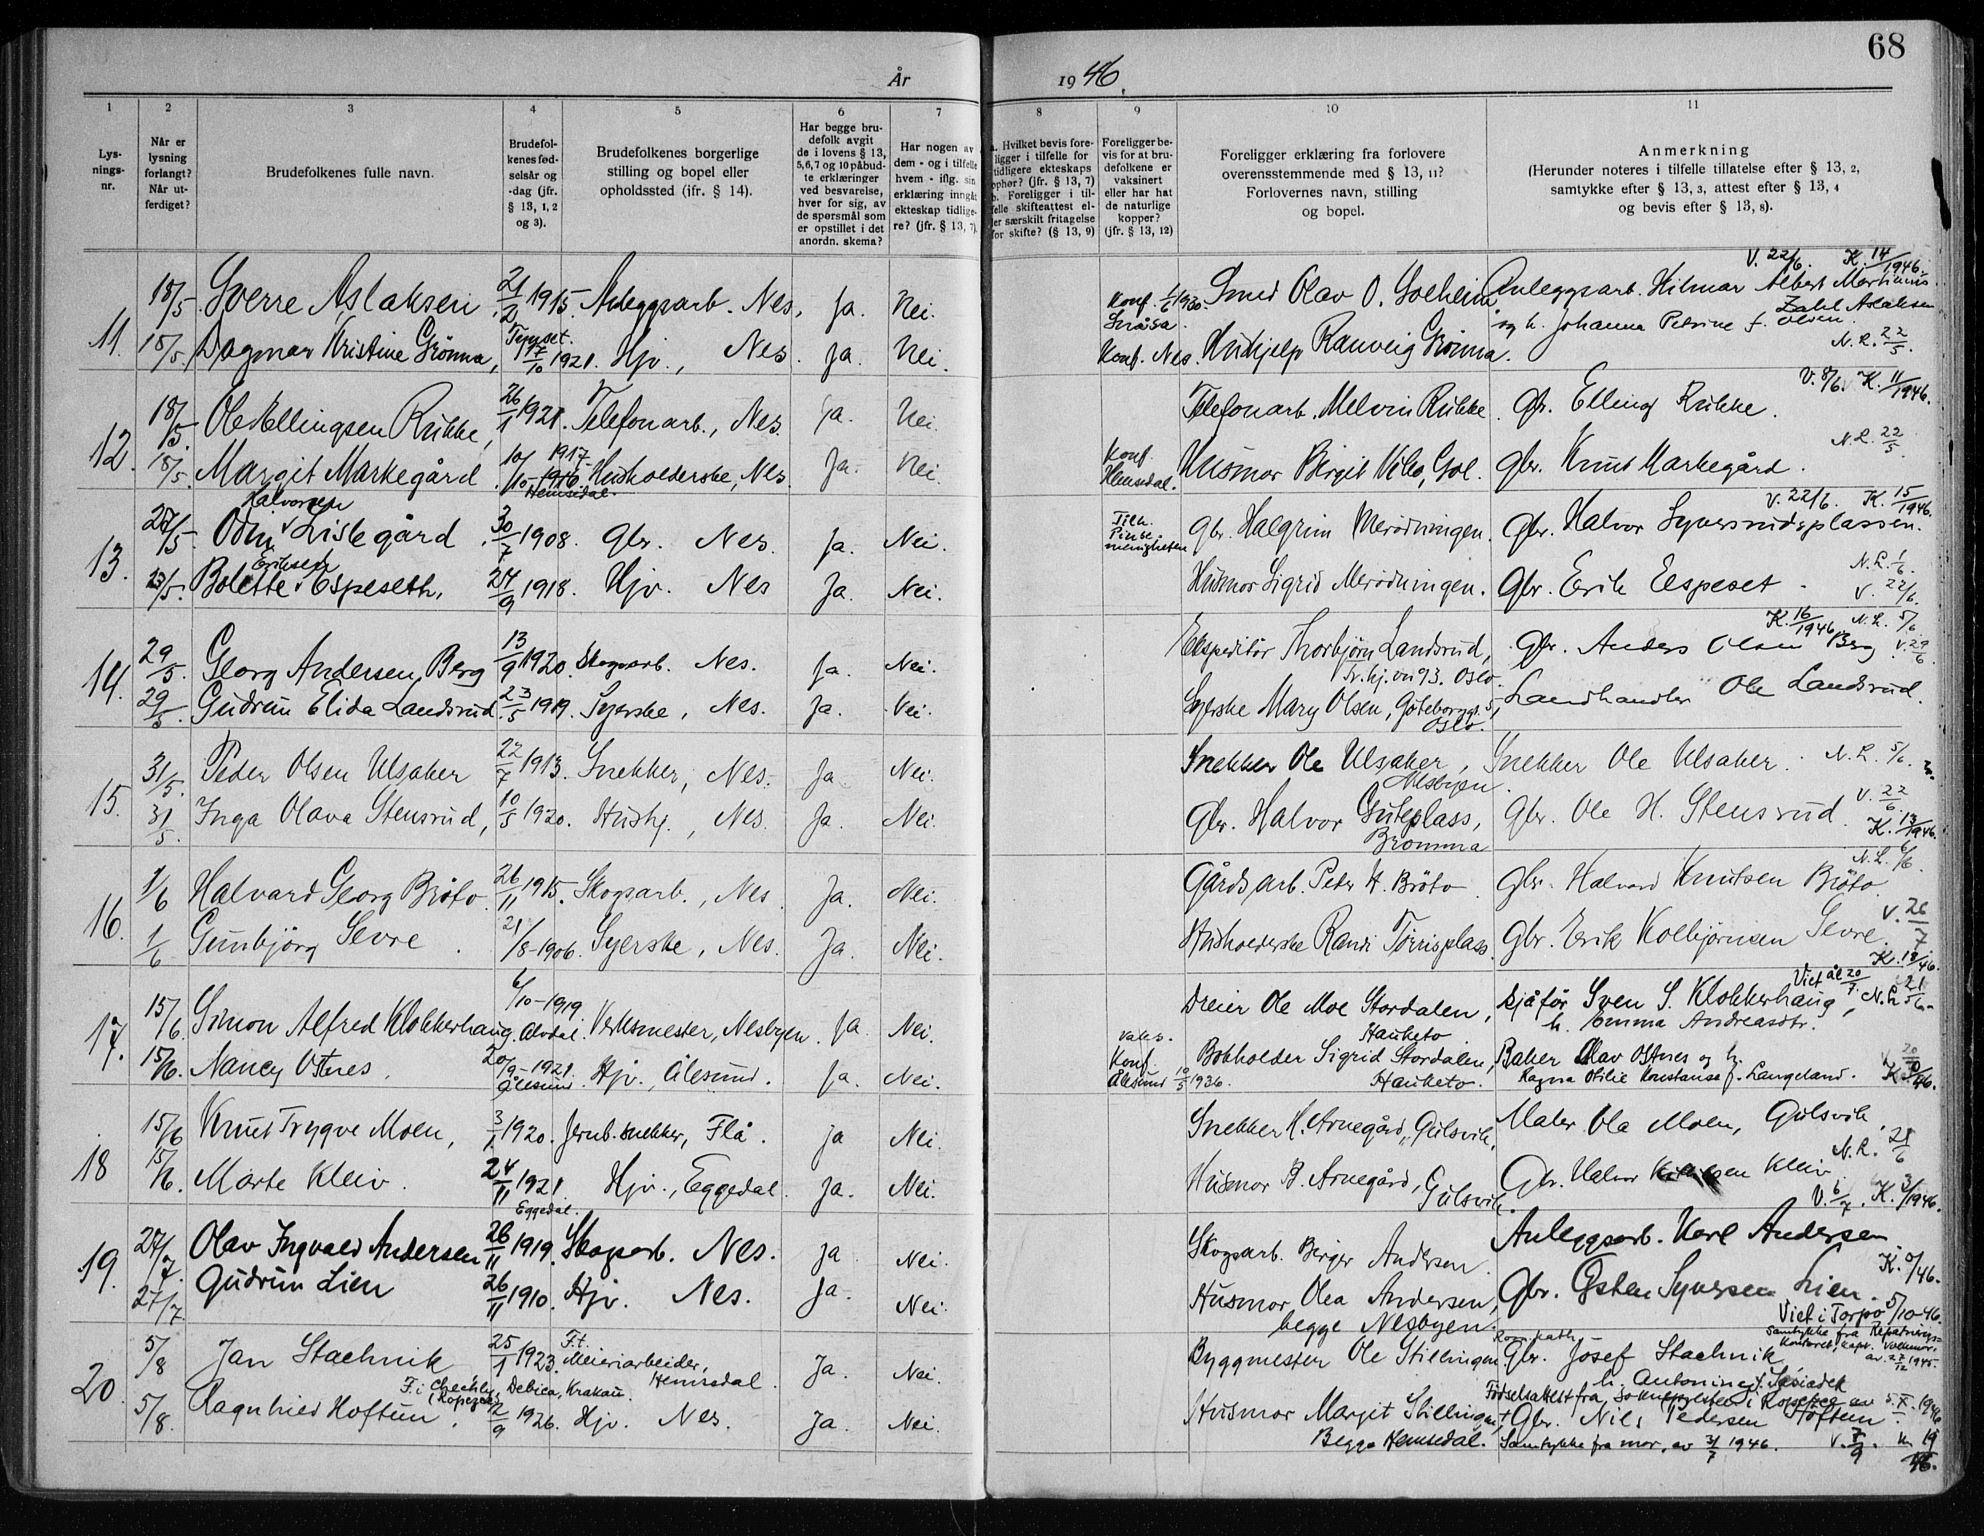 68
År 1946.
1 2 3 4 5 6 7 8 9 10 11
Lysningsnr.
Når er lysning forlangt? Når utferdiget?
Brudefolkenes fulle navn.
Brudefolkenes fødselsår og -dag (jfr. § 13, 1, 2 og 3).
Brudefolkenes borgerlige stilling og bopel eller opholdssted (jfr. § 14).
Har begge brudefolk avgit de i lovens § 13, 5, 6, 7 og 10 påbudte erklæringer ved besvarelse, hver for sig, av de spørsmål som er opstillet i det anordn. skema?
Har nogen av dem - og i tilfelle hvem - iflg. sin erklæring inngått ekteskap tidligere? (jfr. § 13, 7).
a. Hvilket bevis foreligger i tilfelle for tidligere ekteskaps ophør? (jfr. § 13, 7) b. Foreligger i tilfelle skifteattest eller særskilt fritagelse for skifte? (§ 13, 9)
Foreligger bevis for at brudefolkene er vaksinert eller har hat de naturlige kopper? (jfr. § 13, 12)
Foreligger erklæring fra forlovere overensstemmende med § 13, 11? Forlovernes navn, stilling og bopel.
Anmerkning
(Herunder noteres i tilfelle tillatelse efter § 13, 2, samtykke efter § 13, 3, attest efter § 13, 4 og bevis efter § 13, 8).
V. 22/6. K. 14/1946.
11. 18/5. Sverre Aslaksen 21/2 1915. Anleggsarb. Nes, Ja. Nei. Konf. 1930. Snåsa. Smed Olav O. Solheim Anleggsarb. Hilmar Albert Martinius Zahl Aslaksen
og h. Johanna Petrine f. Olsen.
18/5. Dagmar Kristine Grönna, Tynset. 17/10 1921. Hjv., Nes. Ja. Nei. Konf. Nes. Hushjelp Ranveig Grönna. N.L. 22/5.
12. 18/5. Ole Ellingsen Rukke, 26/1 1921. Telefonarb., Nes. Ja. Nei. Telefonarb. Melvin Rukke. Gbr. Elling Rukke. V. 8/6. K. 11/1946.
18/5. Margit Markegård 10/10 1917. 1916. Hemsedal. Husholderske, Nes Ja. Nei. Konf. Hemsedal. Husmor Birgit Vibo, Gol. Gbr. Knut Markegård. N.L. 22/5.
13. 27/5. Odin Halvorsen Lislegård. 30/7 1908. Gbr. Nes. Ja. Nei. Tilh. Pinsemenigheten Gbr. Halgrim Merödningen. Gbr. Halvor Syversrudsplassen. V. 22/6. K. 15/1946.
23/5. Bolette Eriksen Espeseth, 24/9 1918. Hjv. Nes Ja. Nei. Husmor Sigrid Merödningen. Gbr. Erik Eespeset. N.L. 1/6. V. 22/6.
14. 29/5. Georg Andersen Berg 13/9 1920. Skogsarb. Nes. Ja. Nei. Ekspeditör Thorbjörn Landsrud, Tr.hj.vn 93. Oslo. Gbr. Anders Olsen Berg K. 16/1946. N.L. 5/6. V. 29/6
29/5. Gudrun Elida Landsrud. 23/5 1919. Syerske, Nes. Ja. Nei. Syerske Mary Olsen, Göteborgg. 51, Oslo. Landhandler Ole Landsrud.
15. 31/5. Peder Olsen Ulsaker 22/7 1913. Snekker, Nes. Ja. Nei. Snekker Ole Ulsaker, Nesbyen. Snekker Ole Ulsaker. N.L. 5/6.
31/5. Inga Olava Stensrud, 10/5 1920. Hushj., Nes. Ja. Nei. Gbr. Halvor Guteplass, Bromma Gbr. Ole H. Stensrud V. 22/6. K. 13/1946.
16. 1/6 Halvard Georg Bröto. 26/11 1915. Skogsarb., Nes. Ja. Nei. Gårdsarb. Peder H. Bröto. Gbr. Halvard Knutsen Bröto. N.L. 6/6.
1/6 Gunbjörg Sevre. 21/8-1906. Syerske, Nes. Ja. Nei. Husholderske Randi Törrisplass. Gbr. Erik Kolbjörnsen Sevre. V. 26/7 K. 18/46.
17. 15/6. Simon Alfred Klokkerhaug. 6/10-1919. Alvdal. Verksmester, Nesbyen. Ja. Nei. Dreier Ole Moe Stordalen, Hauketo Sjåför Sven S. Klokkerhaug, h. Emma Andreasdtr. Viet Ål 20/7. N.L. 21/6.
15/6. Nancy Ostnes. 20/9-1921. Ålesund. Hjv., Ålesund. Ja. Nei. Vaks. Konf. Ålesund 10/5 1936. Bokholder Sigrid Stordalen, Hauketo. Baker Olav Ostnes og h. Ragna Otilie Konstanse f. Langeland. V. 20/7
18 15/6 Knut Trygve Moen, 3/1 1920. Jernb. snekker, Flå. Ja Nei. Snekker H. Arnegård, Gulsvik. Maler Ola Moen, Gulsvik. N.L. 21/6
15/6. Marte Kleiv. 24/11 1921. Eggedal. Hjv., Eggedal. Ja. Nei. Husmor B. Arnegård, Gulsvik. Gbr. Halvor Kleiv V. 6/7. K. 3/1946.
19. 27/7. Olav Ingvald Andersen 26/11 1919. Skogsarb. Nes. Ja Nei. Skogsarb. Berger Andersen. Anleggsarb. Karl Andersen.
27/7 Gudrun Lien 26/11 1910. Hjv. Nes. Ja. Nei. Husmor Olea Andersen, begge Nesbyen. Gbr. Östen Syversen Lien. Viet i Torpo 5/10-46.
20. 5/8 Jan Stachnik 25/1 1923. F.t. Meieriarbeider, Hemsedal Ja. Nei. Byggmester Ole Stillingen Rom.kath. Gbr. Josef Stachnik h. Antonine f. Sasiadek
F. i Chechly, Debica, Krakau. (Ropczyce)
5/8. Ragnhild Hoftun. 2/9 1926. Hjv. Nes. Ja. Nei. Husmor Margit Stillingen, Begge Hemsedal. Gbr. Nils Pedersen Hoftun
Samtykke fra mor, av 3/7 1946. V. 7/9. K. 19/46.